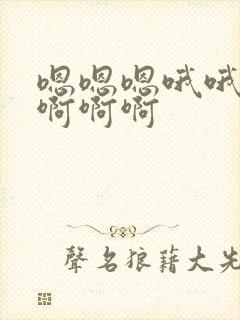 嗯嗯嗯哦哦
啊啊啊
聲名狼藉大先